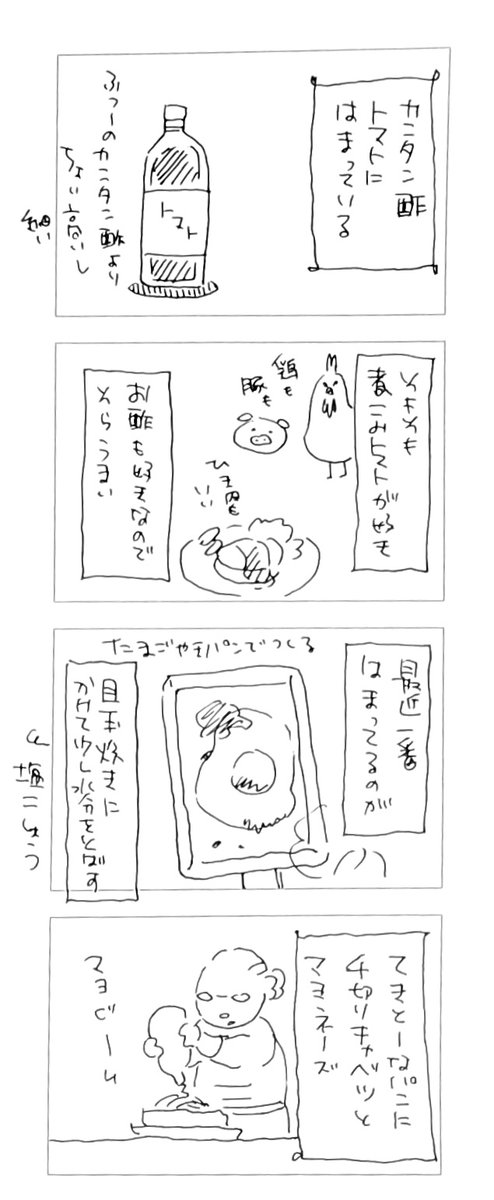 カンタン酢
トマトに
はまっている
トマト
ふつーのカンタン酢より
ちょい高いし
細い
そもそも
煮こみトマトが好き
鶏も
豚も
ひき肉も
いい
お酢も好きなので
そらうまい
最近一番
はまってるのが
たまごやきパンでつくる
目玉炊きに
かけて少し水分をとばす
塩こしょう
てきとーなパンに
千切りキャベツと
マヨネーズ
マヨビーム